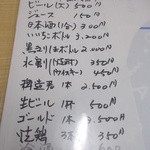 ビール(大) 500円
ジュース 150円
日本酒(1合) 300円
いいちこボトル 3,200円
黒よりはボトル 2,000円
水割り(焼酎) 350円
(ウイスキー) 450円
1杯
生ビール 1杯 500円
ゴールド 1本 3,500円
3本 350円